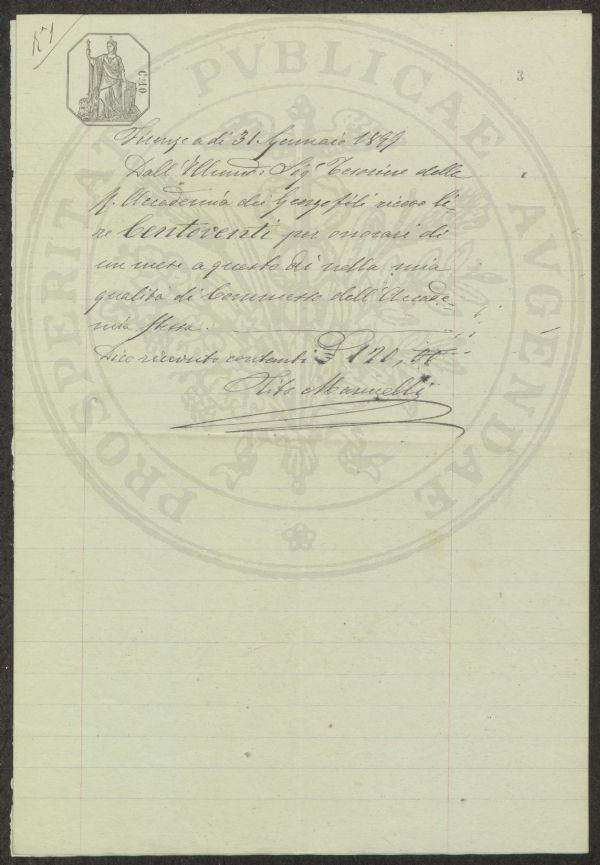 N 1
C.MO
3
PROSPERITATI PVBLICAE AVGENDAE
Firenze a dì 31 Gennaio 1899
Dall'Illmo Sigr Tesoriere della
R. Accademia dei Georgofili ricevo li-
re Centoventi per onorari di
un mese a questo dì nella mia
qualità di Commesso dell'Accade-
mia stessa.
Dico ricevute contanti £ 120,00
Tito Marucelli